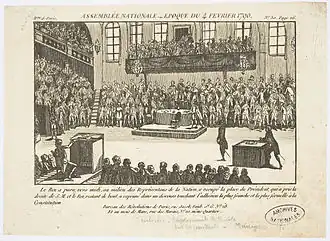 ASSEMBLÉE NATIONALE — EPOQUE DU 4 FEVRIER 1790.
Le Roi a paru, vers midi, au milieu des Représentans de la Nation, a occupé la place du Président, qui a pris la
droite de S. M. et le Roi, restant debout, a exprimé dans un discours touchant l'adhésion la plus franche et la plus formelle à la
Constitution
Bureau des Révolutions de Paris, rue Jacob, Faub. S. G. N.° 28.
Et au mois de Mars, rue des Marais,
ARCHIVES
NATIONALES